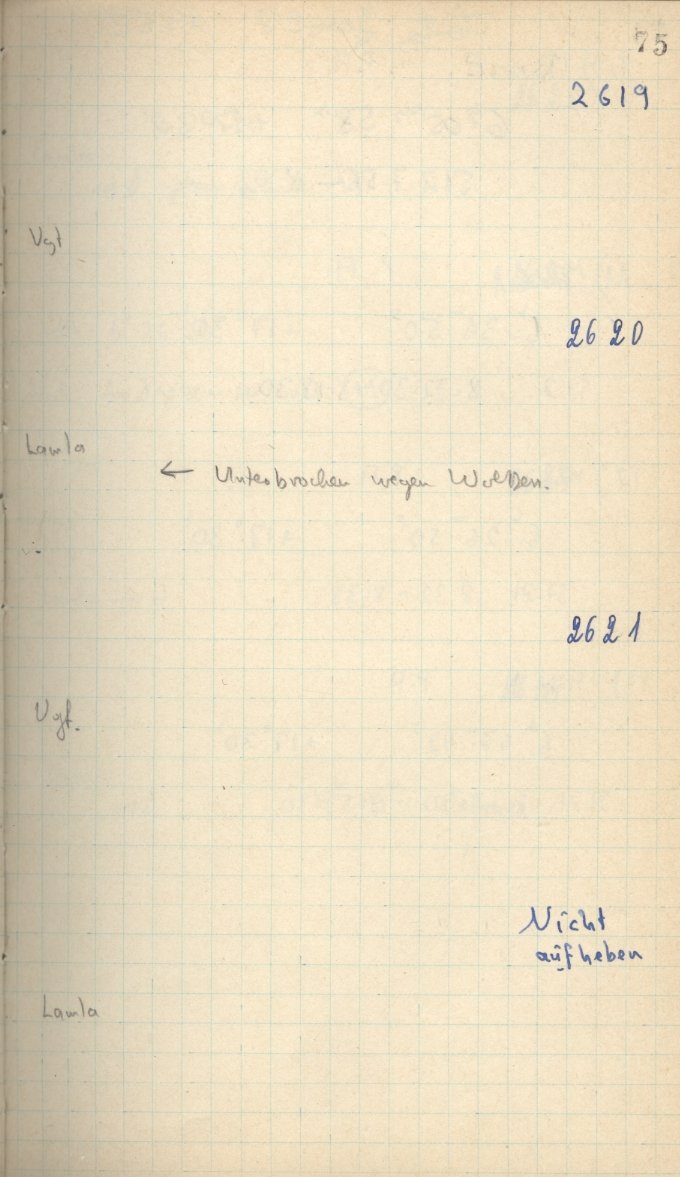 75
2619
Vgt
2620
Lamla
← Unterbrochen wegen Wolken.
2621
Vgt.
Nicht
aufheben
Lamla